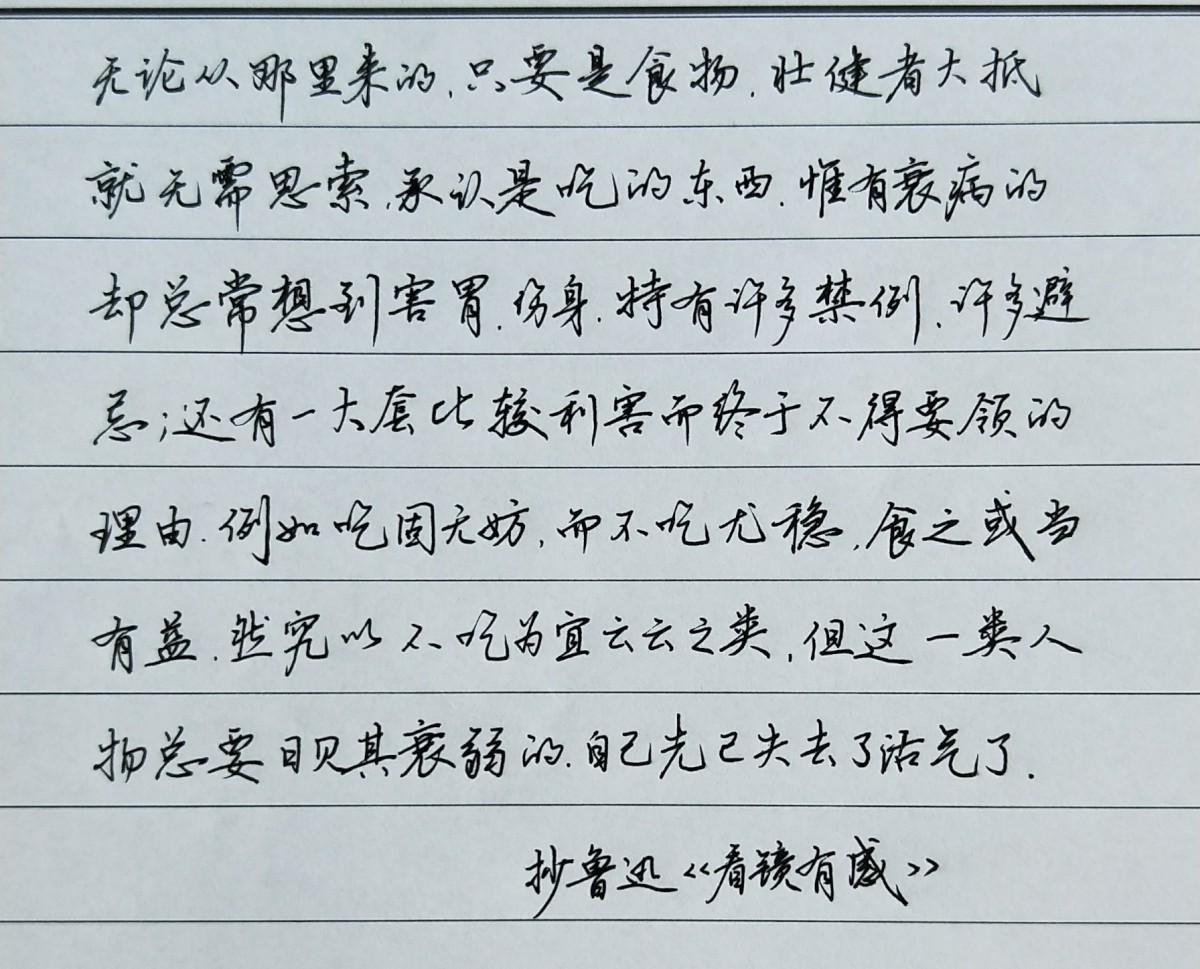 无论从那里来的,只要是食物,壮健者大抵
就无需思索,承认是吃的东西.惟有衰病的
却总常想到害胃,伤身.特有许多禁例,许多避
忌;还有一大套比较利害而终于不得要领的
理由.例如吃固无妨,而不吃尤稳,食之或当
有益,然究以不吃为宜云云之类,但这一类人
物总要日见其衰弱的.自己先已失去了活气了.
抄鲁迅《看镜有感》